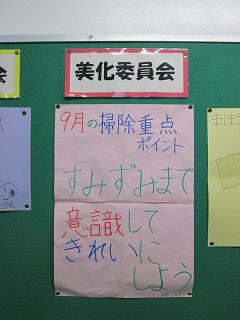 美化委員会
9月の掃除重点
ポイント
すみずみまで
意識して
きれいに
しよう
会
まほう